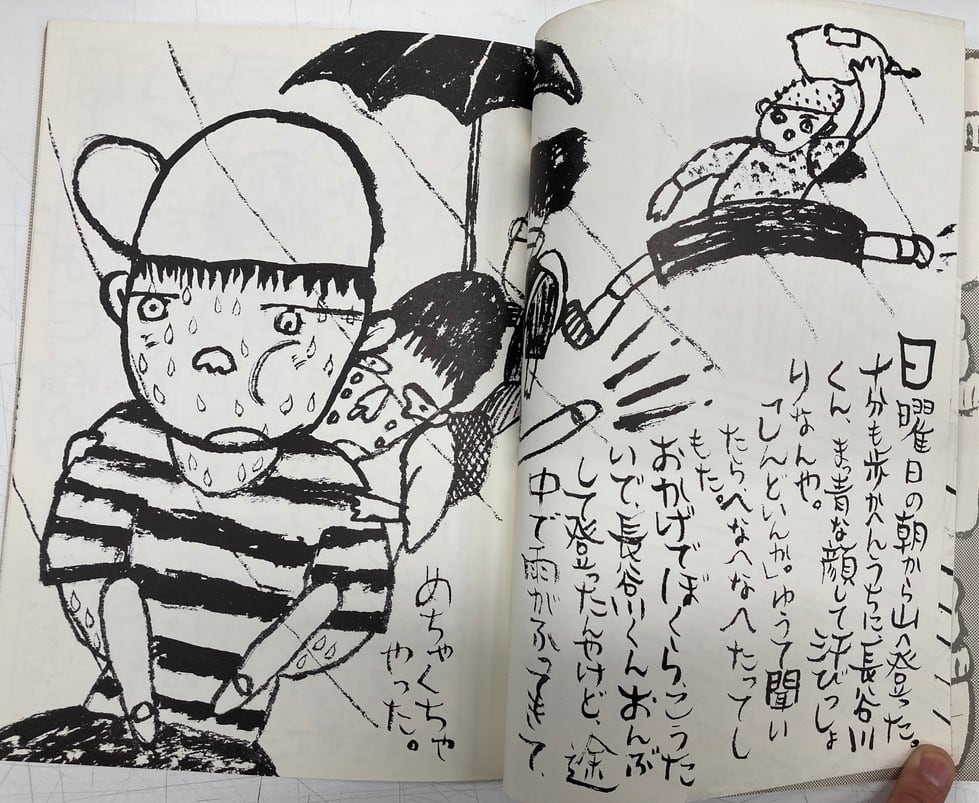 日曜日の朝から山へ登った。
十分も歩かへんうちに、長谷川
くん、まっ青な顔して汗びっしょ
りなんや。
「しんどいんか」ゆうて聞い
たらへなへなへたってし
もた。
おかげでぼくらこうた
いで、長谷川くんおんぶ
して登ったんやけど、途
中で雨がふってきて、
めちゃくちゃ
やった。